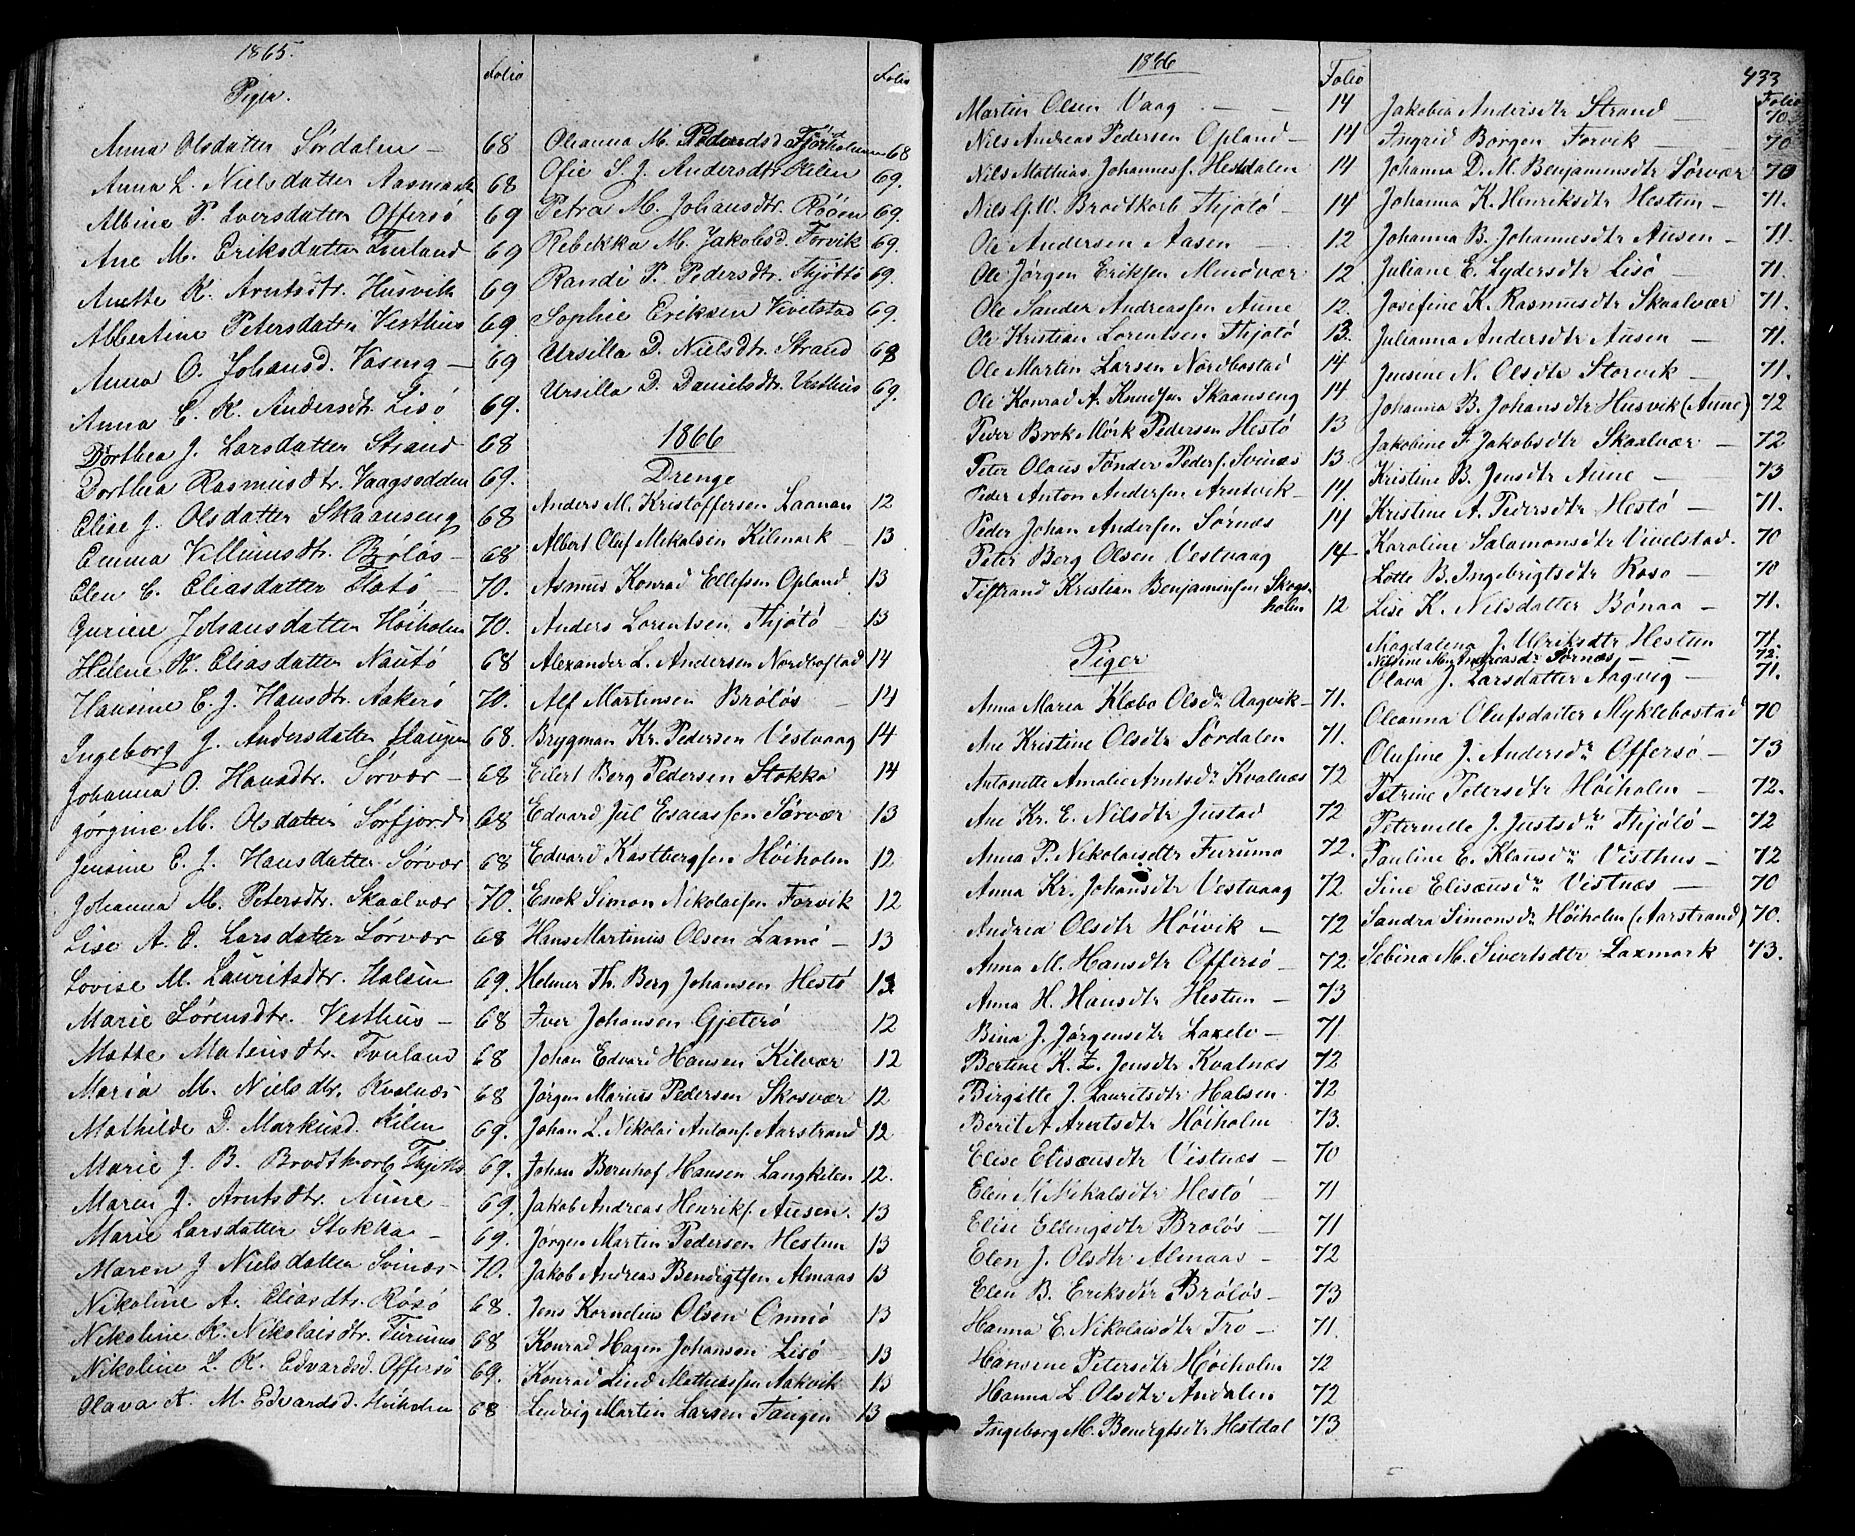 1865.
Piger.
Folio
Anna Olsdatter Sørdalen — 68
Anna L. Nielsdatter Aasmark 68
Albina P. Iversdatter Offersø 69
Ane M. Eriksdatter Tverland 69
Anette K. Arntsdtr. Husvik 69
Albertine Petersdatter Vesthus 69.
Anna O. Johansd. Vaseng — 69
Anna C. K. Andersdtr. Lisø 69.
Dorthea J. Larsdatter Strand 68
Dorthea Rasmusdtr. Vaagsodden 69.
Elise J. Olsdatter Skaanseng 68
Emma Villumsdtr. Brøløs — 68
Elen E. Eliasdatter Flatø — 70.
Gurine Johansdatter Høiholm 70.
Helene K. Eliasdatter Nautø 68
Hansine E. J. Hansdtr. Aakerø 70.
Ingeborg J. Andersdatter Haugen 68.
Johanna O. Hansdtr. Sørvær — 68
Jørgine M. Olsdatter Sørfjord 68
Jensine E. J. Hansdatter Sørvær 68
Johanna M. Petersdtr. Skaalvær 70.
Lise A. E. Larsdatter Sørvær 68
Lovise M. Lauritsdtr. Halsen 69.
Marie Sørensdtr. Vesthus — 68
Mette Mateusdtr. Tverland 68
Maria M. Nielsdtr. Kvalnæs 68
Mathilde D. Markusd. Kilen 69.
Marie J. B. Brodtkorb Thjøtø 69.
Maren J. Arntsdtr. Aune — 69.
Marie Larsdatter Stokka — 69.
Maren J Nielsdatter Svinæs 70.
Nikoline A. Eliasdtr. Røsø 68.
Nikoline K. Nikolaisdtr. Furumo 68
Nikoline L. K. Edvardsd. Offersø 69.
Olava A. M. Edvardsd. Høiholm 68
Folio
Oleanna M. Pedersd. Fjordholmen 68
Ofie S. J. Andersdtr. Kilen 69.
Petra M. Johansdtr. Røøen 69.
Rebekka M. Jakobsd. Forvik 69.
Randi P. Pedersdtr. Thjøttø 69.
Sophie Eriksen Vivelstad 69.
Ursilla D. Nielsdtr. Strand 68
Ursilla D. Danielsdtr. Vesthus 69.
1866
Drenge
Anders M. Kristoffersen Laanan 12
Albert Oluf Mikalsen Kilmark — 13
Asmus Konrad Ellefsen Opland. 13
Anders Lorentsen Thjøtø — 13
Alexander L. Andersen Nordbostad 14
Alf Martinsen Brøløs — 14
Brygman Kr. Pedersen Vestvaag 14
Eilert Berg Pedersen Stokka 14
Edvard Jul Esaiassen Sørvær 13
Edvard Kastbergsen Høiholm 12
Enok Simon Nikolaisen Forvik 12
Hans Martinus Olsen Lamo — 13
Helmer Th. Berg Johansen Hestø 13
Iver Johansen Gjeterø 12
Johan Edvard Hansen Kilvær 12
Jørgen Marius Pedersen Skosvær 12
Johan L. Nikolai Antons. Aarstrand 12
Johan Bernhof Hansen Langkilen 12.
Jakob Andreas Henriks. Ausen. 13
Jørgen Martin Pedersen Hestun 13
Jakob Andreas Bendigtsen Almaas 13
Jens Kornelius Olsen Omnø 13
Konrad Hagen Johansen Lisø 13
Konrad Lind Mathiassen Aakvik 13
Ludvig Martin Larsen Tangen 13
1866
Folio
Martin Olsen Vaag — — 14
Nils Andreas Pedersen Opland — 14
Nils Mathias Johanness. Hestdalen 14
Nils G. W. Brodtkorb Thjøtø — 14
Ole Andersen Aasen — 12
Ole Jørgen Eriksen Mindvær 12.
Ole Sander Andreassen Aune 12.
Ole Kristian Lorentsen Thjøtø 13.
Ole Martin Larsen Nordbostad 14
Ole Konrad A. Knudsen Skaanseng 14
Peder Brok Mørk Pedersen Hestø 13
Peter Olaus Tønder Peders. Svinæs 13
Peder Anton Andersen Arntvik — 14.
Peder Johan Andersen Sørnæs 14
Peter Berg Olsen Vestvaag 14
Tistrand Kristian Benjaminsen Skogsholm 12
Piger
Anna Maria Klæbo Olsdr Aagvik — 71.
Ane Kristine Olsdtr Sørdalen 71.
Antonette Amalie Arntsdr Kvalnæs 72
Ane Kr. E. Nilsdtr Justad 72
Anna P. Nikolaisdtr Furumo 72.
Anna Kr. Johansdtr Vestvaag 72
Andrea Olsdtr Høivik — 72
Anna M. Hansdtr Offersø — 72
Anna H. Hansdtr Hestun — 73
Bina J. Jørgensdtr Laxelv — 71
Bertine K. Z. Jensdtr Kvalnæs 72
Birgitte J. Lauritsdtr Halsen 72
Berit A Arntsdtr Høiholm 73.
Elise Eliseusdtr Vistnæs — 70
Elen M Nikalsdtr Hestø — 71
Elise Ellingsdtr Brøløs — 71
Elen J. Olsdtr Almaas — 72
Elen B. Eriksdtr Brøløs — 73
Hanna E. Nikolaisdtr Tro — 71.
Hansine Petersdtr Høiholm 72
Hanna L. Olsdtr Andalen 72
Ingeborg M. Bendigtsdtr Hestdal 73
433
Folio
Jakobia Andersdtr Strand — 70.
Ingrid Borgen Forvik — — 70
Johanna D. M. Benjaminsdtr Sørvær 70
Johanna K. Henriksdtr Hestun — 71.
Johanna B. Johannesdtr Ausen — 71.
Juliane E. Lydersdtr Lisø — 71.
Josefine K. Rasmusdtr Skaalvær 71.
Julianna Andersdtr Ausen — 71.
Jensine N. Olsdtr Storvik — 71.
Johanna B. Johansdtr Husvik (Aune) 72
Jakobine F. Jakobsdtr Skaalvær — 72
Kristine B. Jensdtr Aune — 73
Kristine A. Pedersdtr Hestø — 71.
Karoline Salamonsdtr Vivelstad. 70
Lotte B. Ingebrigtsdtr Roso — 70
Lise K. Nilsdatter Bønaa — 71.
Magdalena J. Ulriksdtr Hestun 71.
Nilsine M. Andreasdr Sørnæs — — 72.
Olava J. Larsdatter Aagvig — 71.
Oleanna Olufsdatter Myklebostad 70
Olufine J. Andersdr Offersø — 73
Petrine Petersdtr Høiholm — 72.
Peternelle J. Justsdr Thjøtø — 72
Pauline E. Klausdr Visthus — 72
Sine Eliseusdr Vistnæs — 70
Sandra Simonsdr Høiholm (Aarstrand) 70.
Sebina M. Sivertsdtr Laxmark 73.